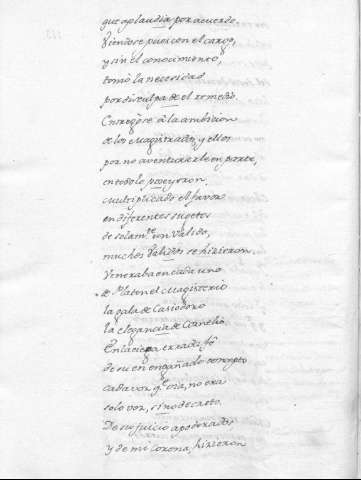 que aplaudia por acuerdo.
Viendose pues con el cargo,
y sin el conocimiento,
tomó la necesidad
por disculpa de el remedio.
Entregòse à la ambicion
de los Magistrados, y ellos
por no aventurarle en parte,
en todo lo poseyeron
Multiplicado el favor
en diferentes sugetos
de solam.te un Valido,
muchos Validos se hizieron.
Veneraba en cada uno
de Platon el Magisterio
la gala de Casiodoro
la elegancia de Cornelio.
En la ciega errada fe
de su engañado concepto
cada voz q.e oìa, no era
solo voz, sino decreto.
De su juicio apoderados
y de mi Corona, hizieron